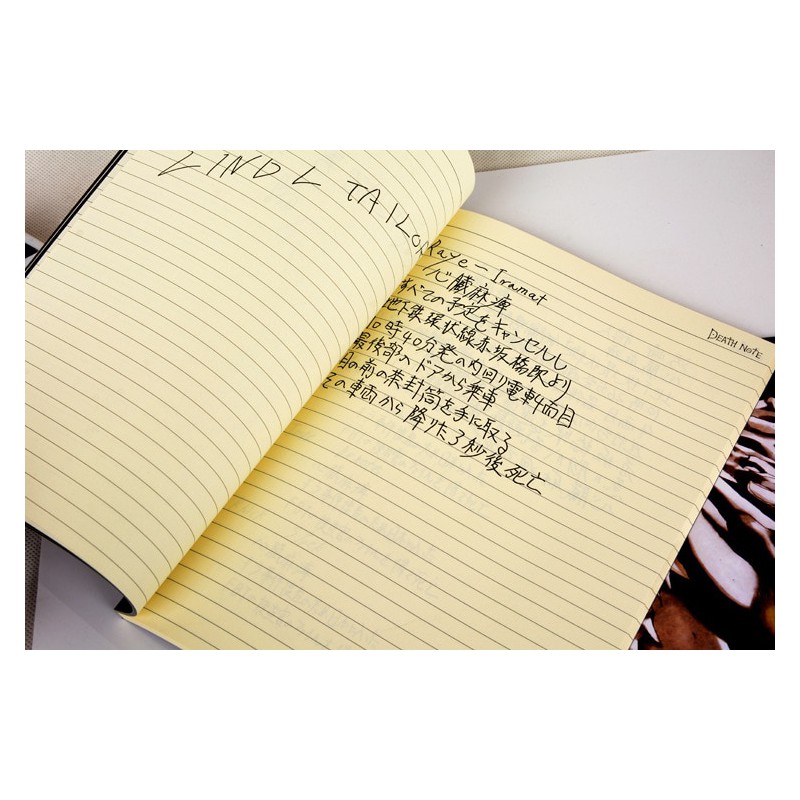 LIND L TAILOR
Raye-Iramat
心臓麻痺
すべての予定をキャンセルし
地下鉄環状線赤坂橋駅より
10時40分発の内回り電車4両目
最後部のドアから乗車
目の前の茶封筒を手に取る
その車両から降りた3秒後死亡
DEATH NOTE